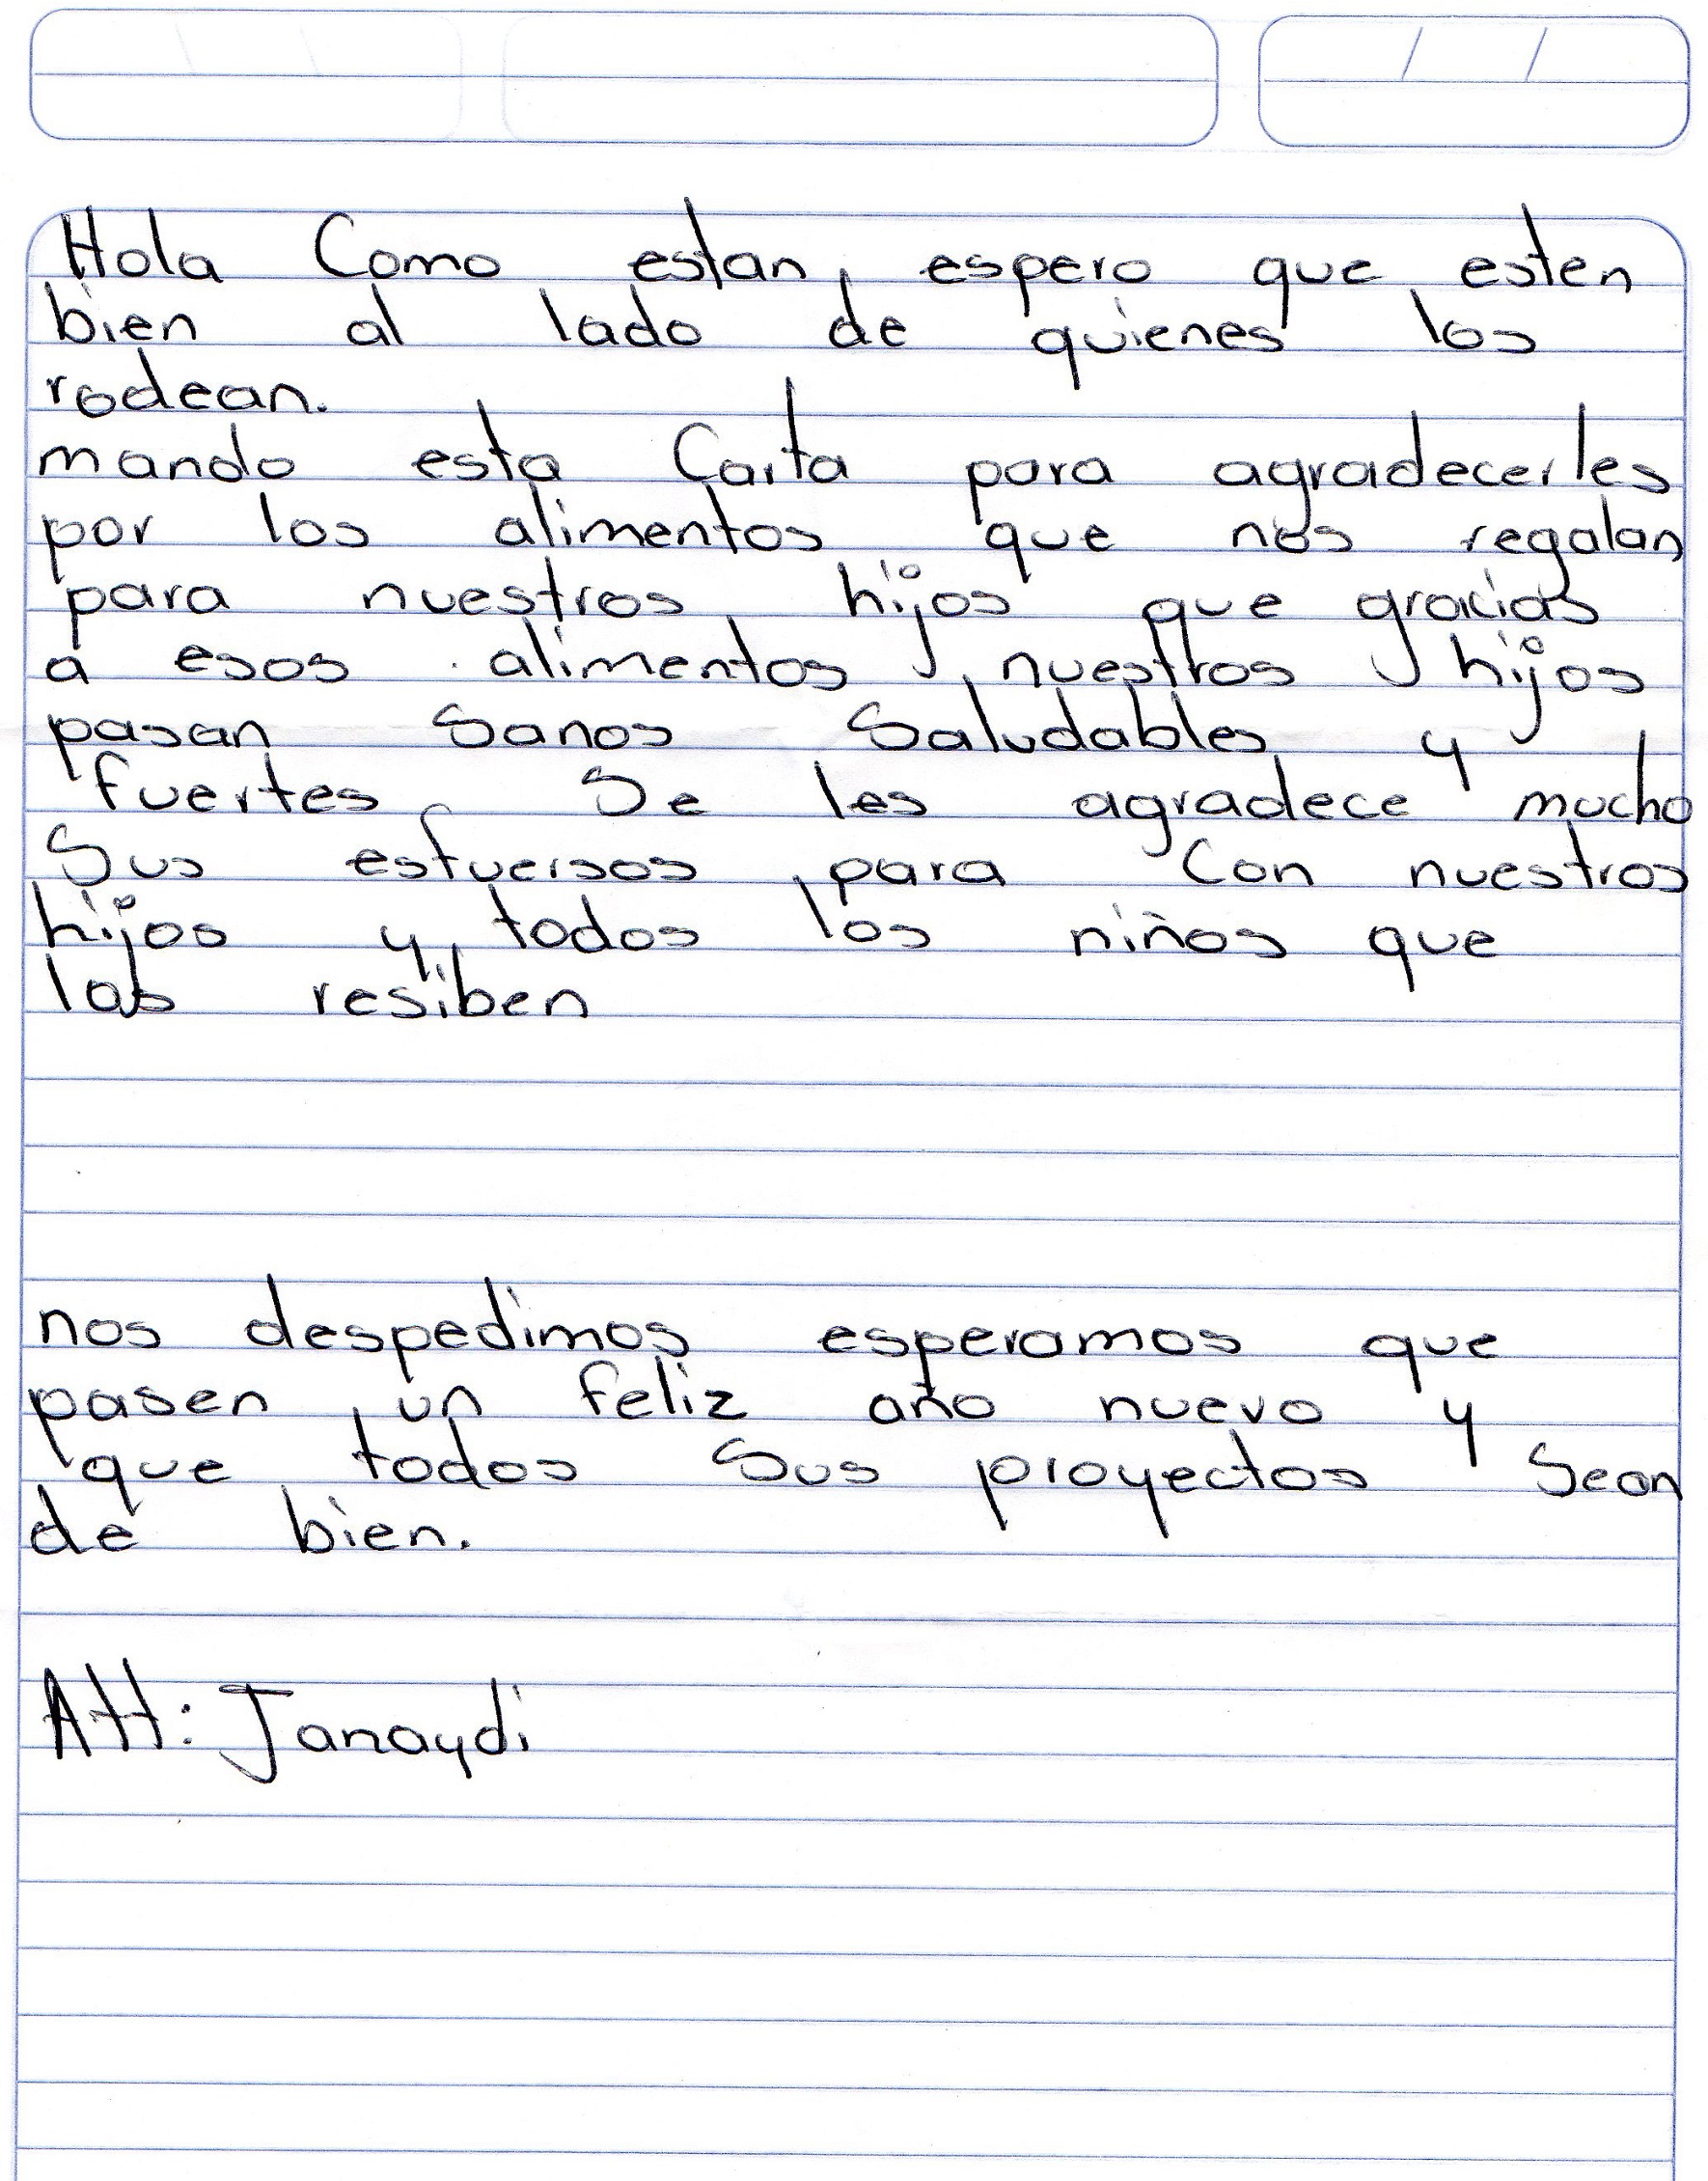 Hola Como estan, espero que esten
bien al lado de quienes los
rodean.
mando esta Carta para agradecerles
por los alimentos que nos regalan
para nuestros hijos que gracias
a esos alimentos nuestros hijos
pasan Sanos Saludables y
fuertes Se les agradece mucho
Sus esfuersos para Con nuestros
hijos y todos los niños que
los resiben
nos despedimos esperamos que
pasen un feliz año nuevo y
que todos Sus proyectos Sean
de bien.
Att: Janaydi